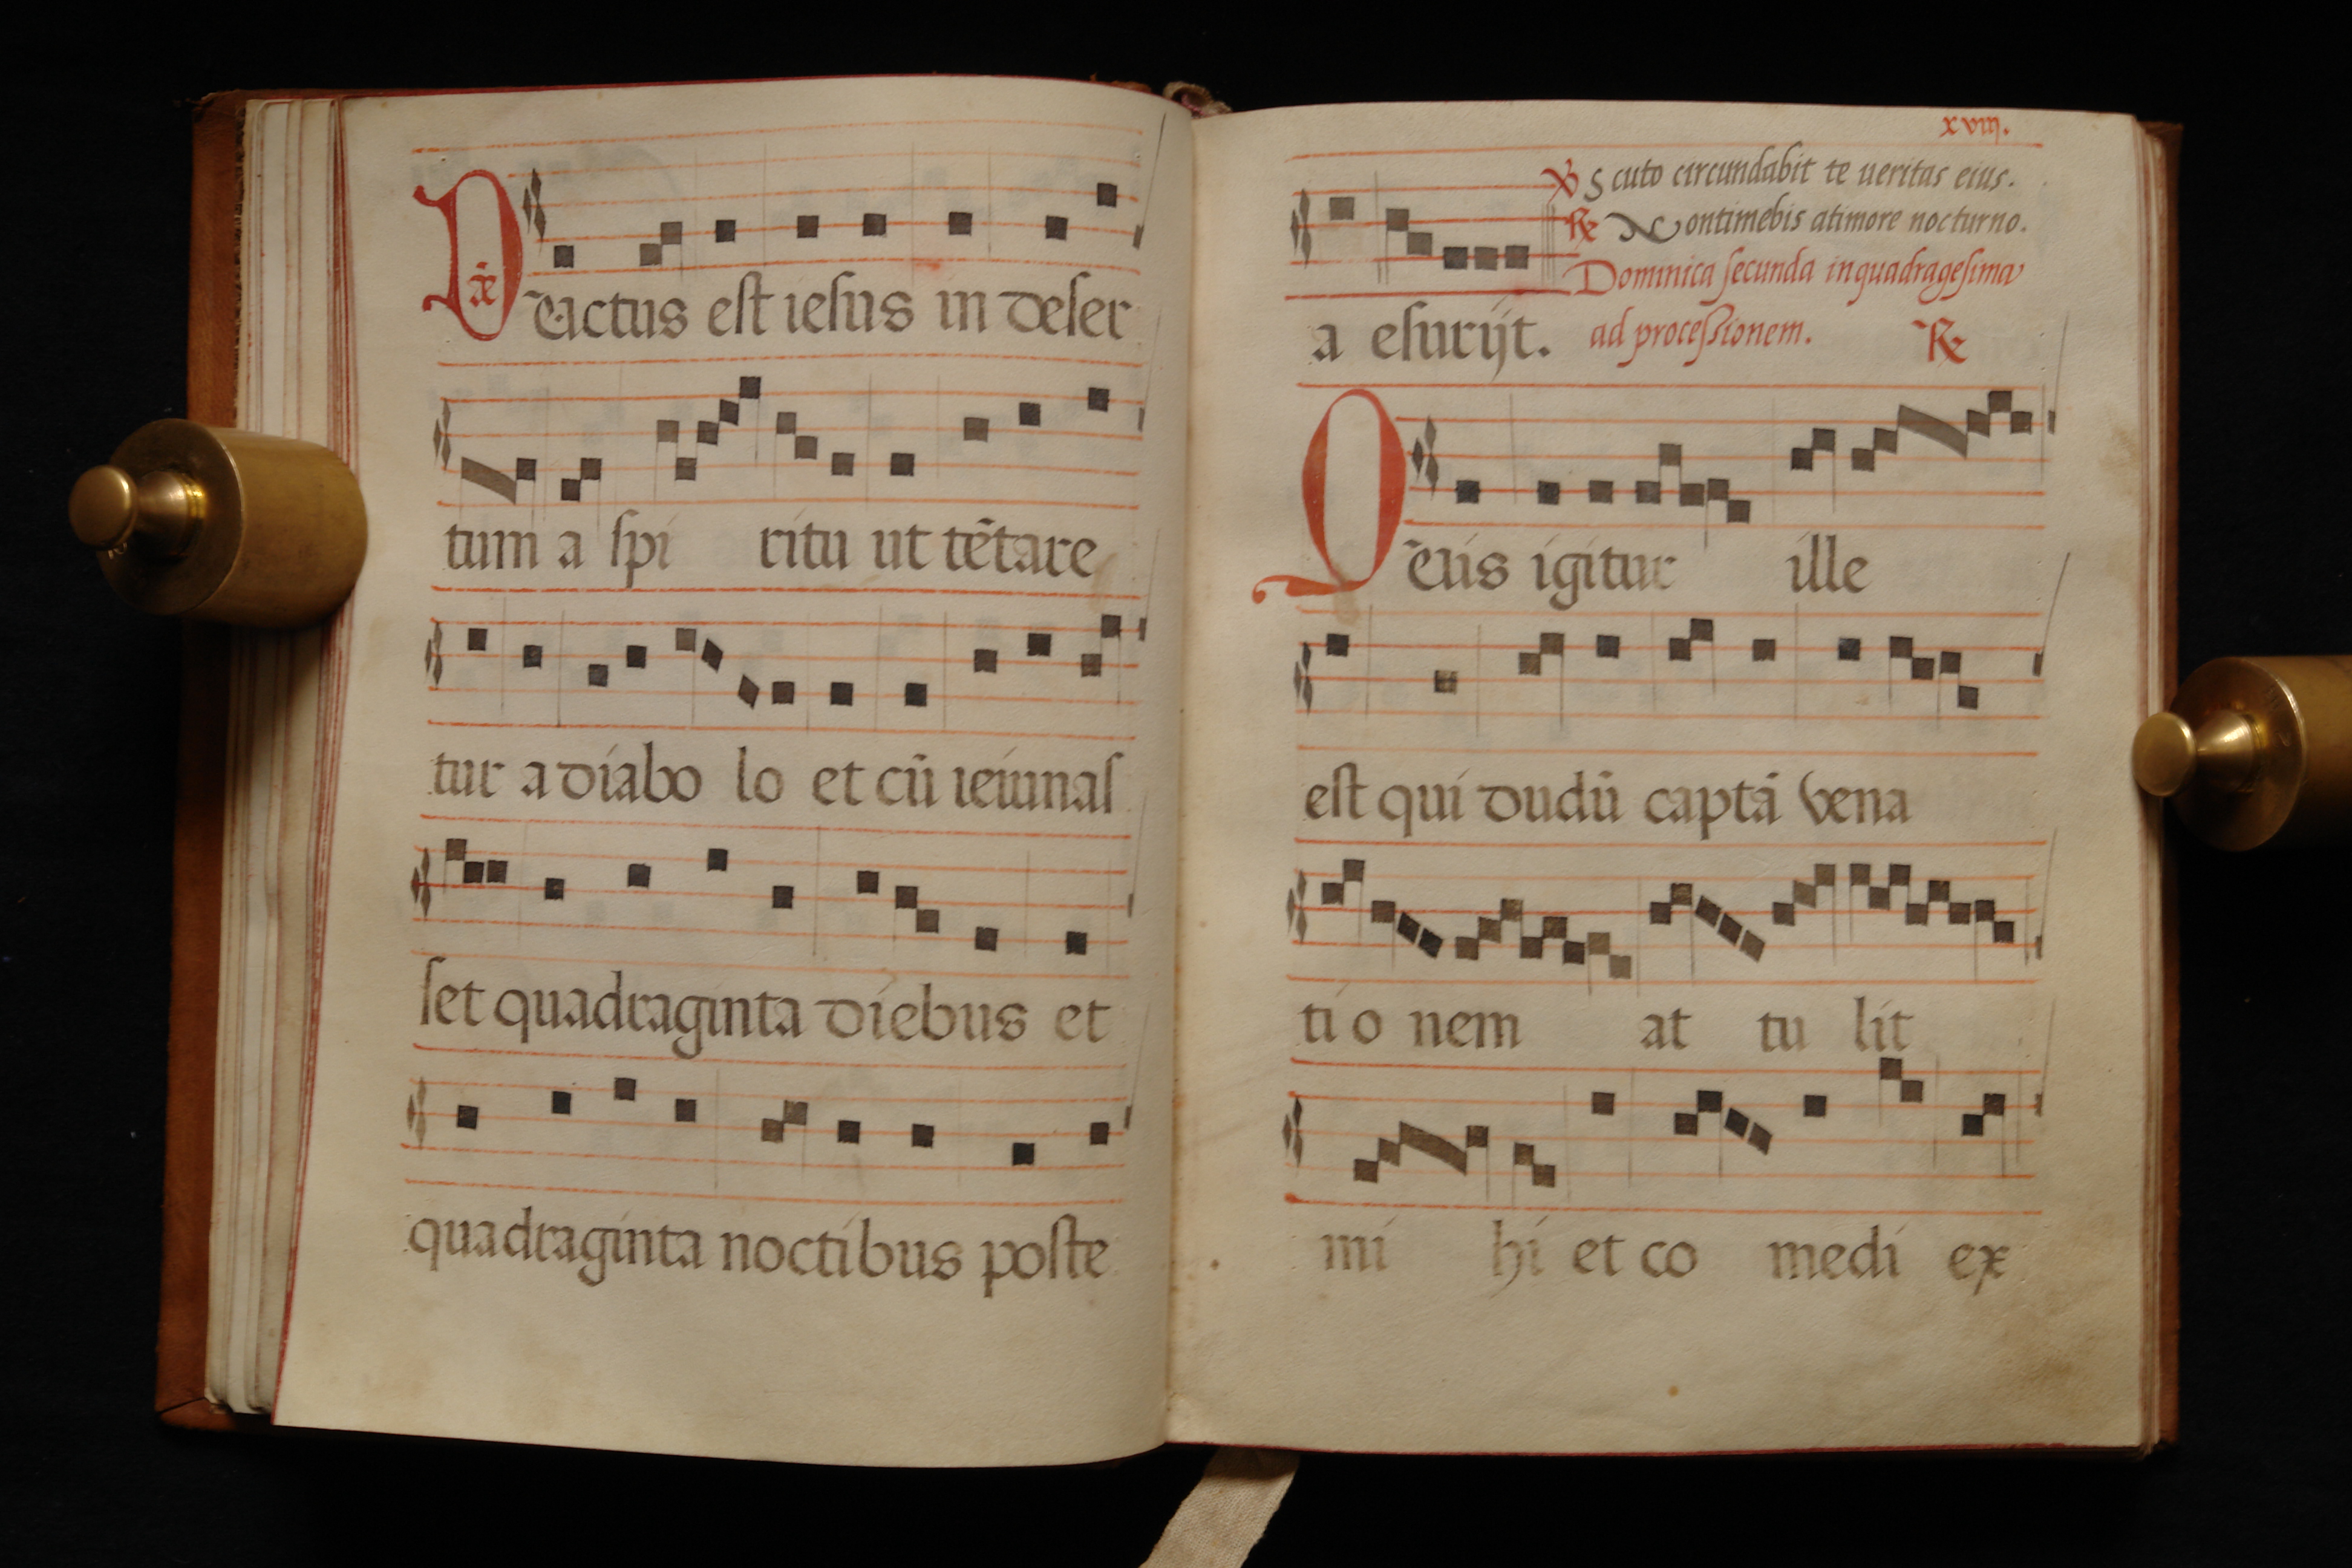 Ductus est iesus in deser
tum a spi ritu ut tẽtare
tur a diabo lo et cũ ieiunas
set quadraginta diebus et
quadraginta noctibus poste
xviij.
Scuto circundabit te ueritas eius.
Nontimebis atimore nocturno.
Dominica secunda inquadragesima
a esurijt. ad processionem.
Quis igitur ille
est qui dudũ captã vena
ti o nem at tu lit
mi hi et co medi ex